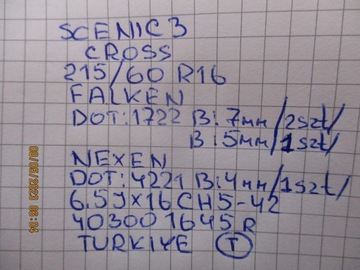 SCENIC 3
CROSS
215/60 R16
FALKEN
DOT:1722 B:7мм/2szt/
B:5мм/1szt/
NEXEN
DOT:4221 B:4мм/1szt/
6.5J×16 CH5-42
403001645R
TURKIYE T